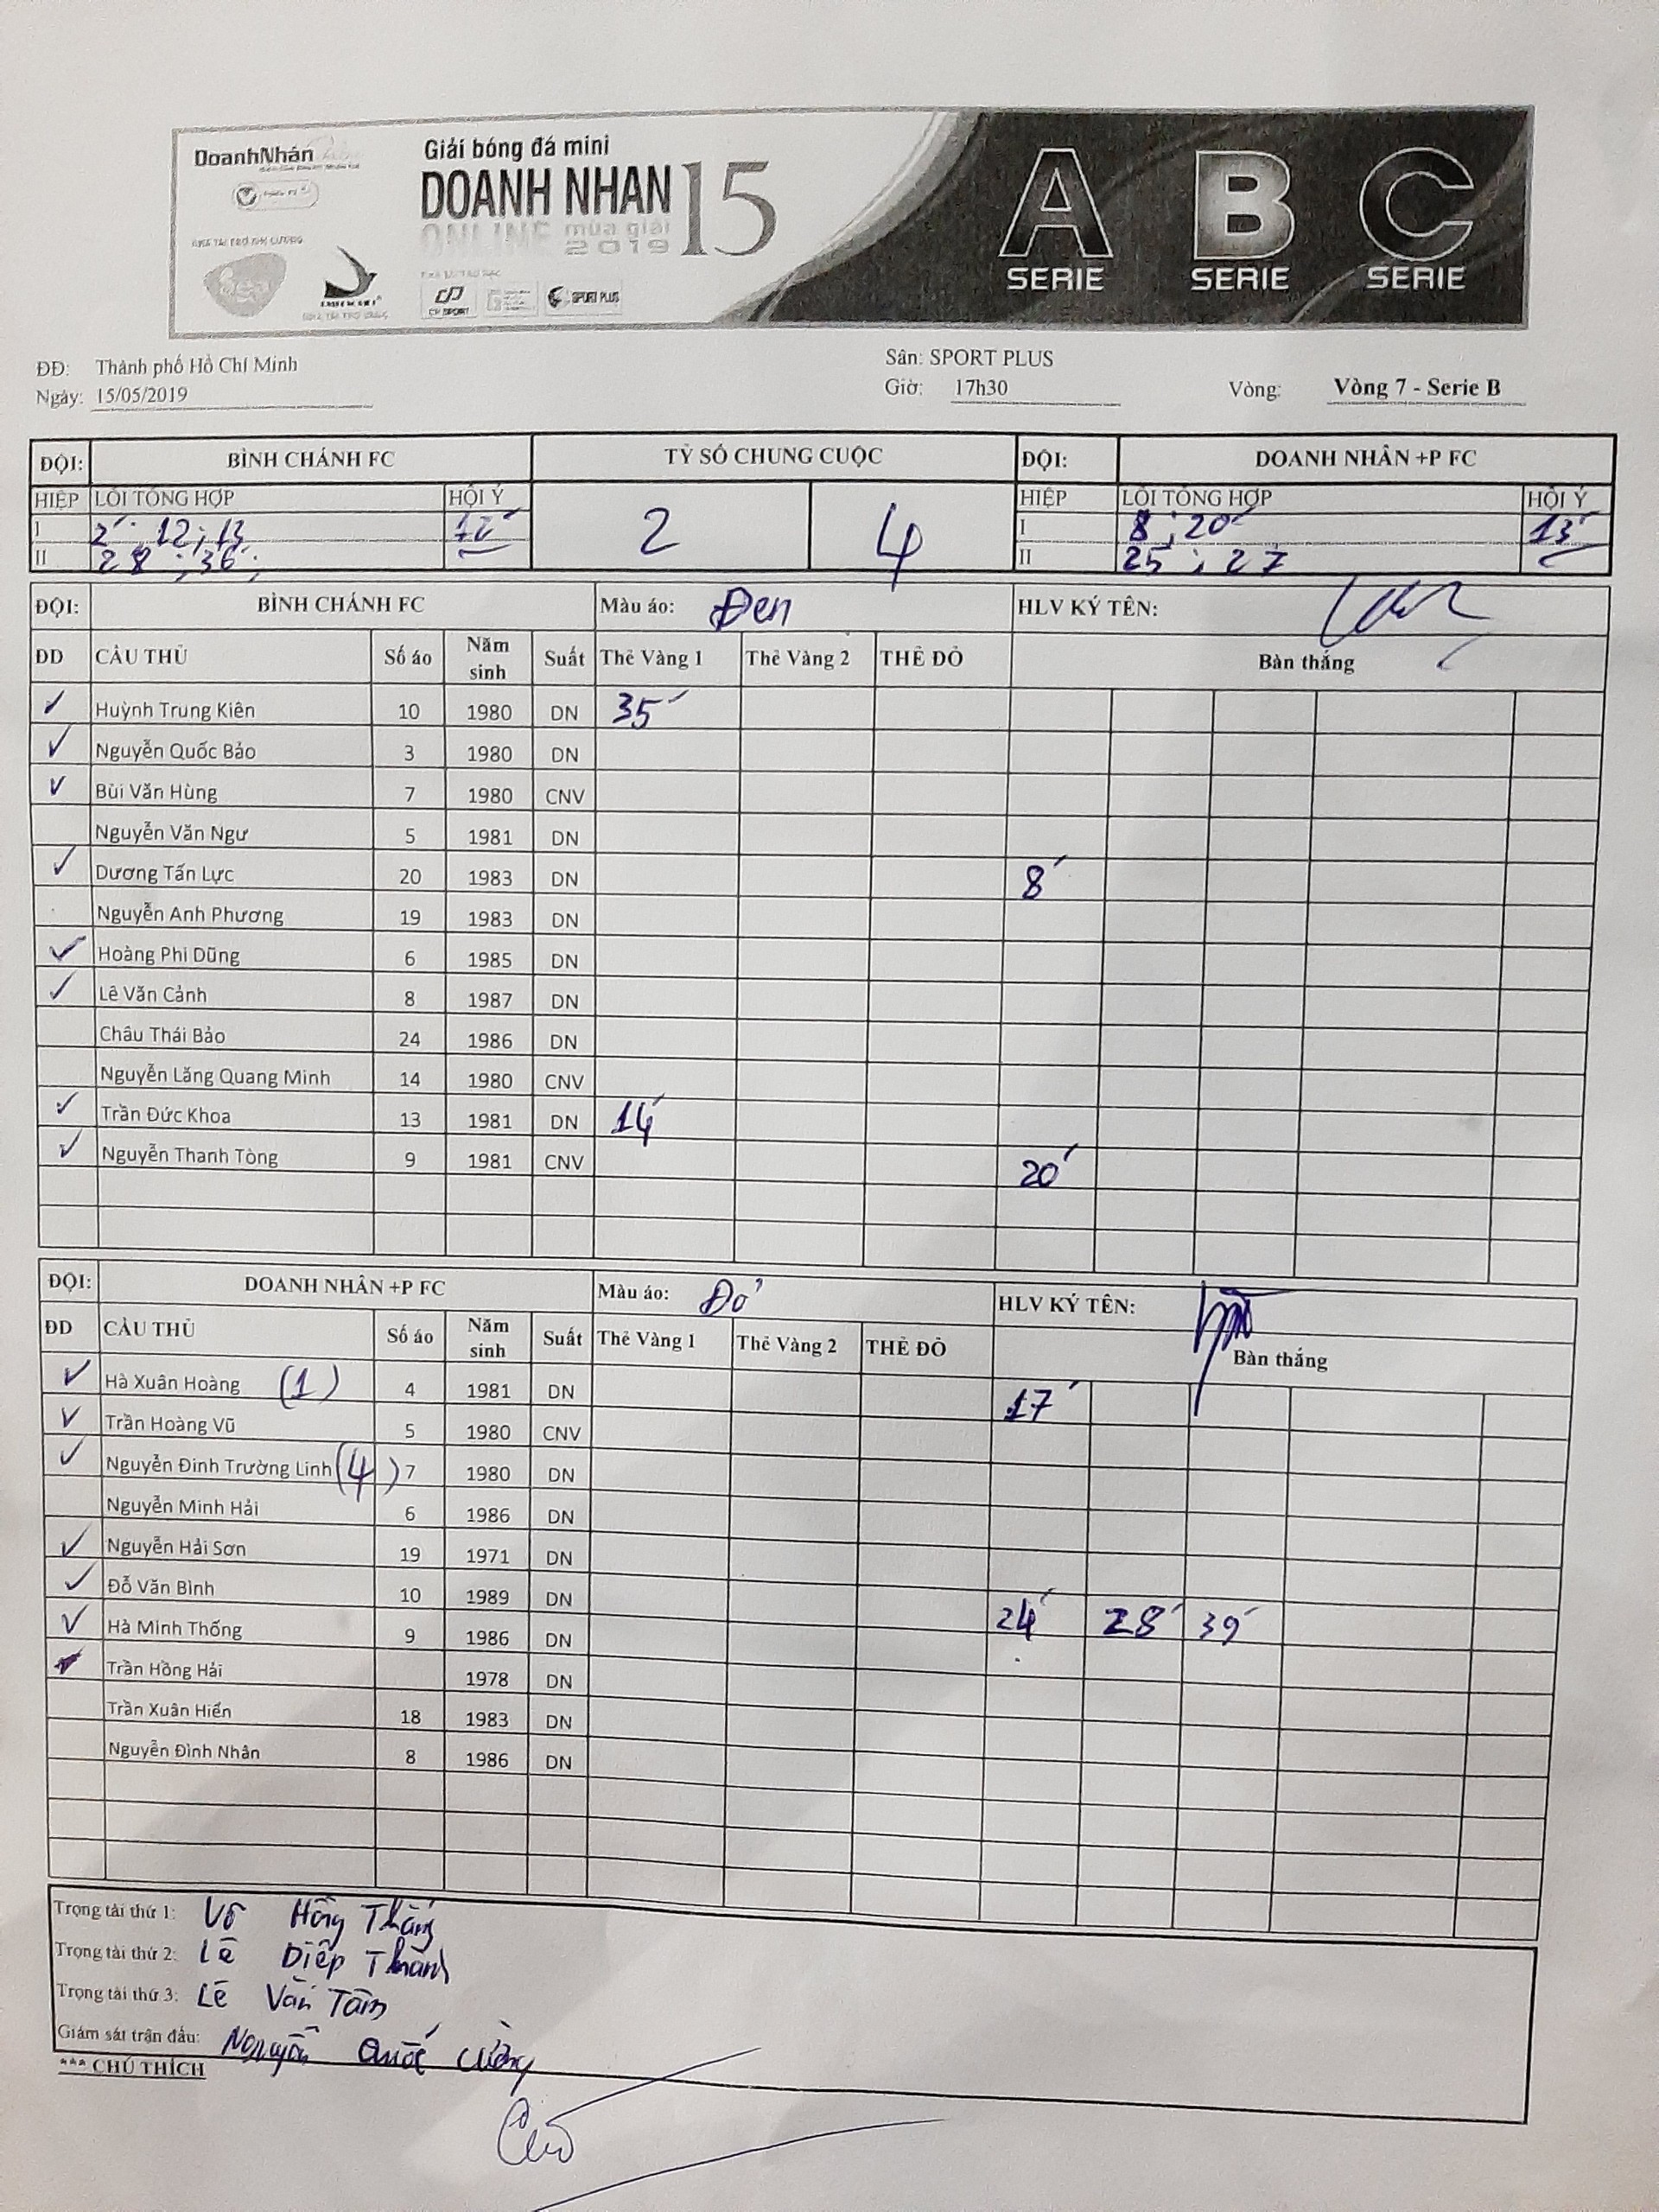 DoanhNhân
Giải bóng đá mini
DOANH NHAN 15
ONLINE mùa giải
2019
SPORT PLUS
A B C
SERIE SERIE SERIE
ĐĐ: Thành phố Hồ Chí Minh Sân: SPORT PLUS
Ngày: 15/05/2019 Giờ: 17h30 Vòng: Vòng 7 - Serie B
ĐỘI: BÌNH CHÁNH FC TỶ SỐ CHUNG CUỘC ĐỘI: DOANH NHÂN +P FC
HIỆP LỖI TỔNG HỢP HỘI Ý 2 4 HIỆP LỖI TỔNG HỢP HỘI Ý
I 2' 12; 13 12' I 8; 20' 13'
II 28 ; 36; II 25 ; 27
ĐỘI: BÌNH CHÁNH FC Màu áo: Đen HLV KÝ TÊN:
ĐD CẦU THỦ Số áo Năm sinh Suất Thẻ Vàng 1 Thẻ Vàng 2 THẺ ĐỎ Bàn thắng
✓ Huỳnh Trung Kiên 10 1980 DN 35'
✓ Nguyễn Quốc Bảo 3 1980 DN
✓ Bùi Văn Hùng 7 1980 CNV
Nguyễn Văn Ngư 5 1981 DN
✓ Dương Tấn Lực 20 1983 DN 8'
Nguyễn Anh Phương 19 1983 DN
✓ Hoàng Phi Dũng 6 1985 DN
✓ Lê Văn Cảnh 8 1987 DN
Châu Thái Bảo 24 1986 DN
Nguyễn Lăng Quang Minh 14 1980 CNV
✓ Trần Đức Khoa 13 1981 DN 14'
✓ Nguyễn Thanh Tòng 9 1981 CNV 20'
ĐỘI: DOANH NHÂN +P FC Màu áo: Đỏ HLV KÝ TÊN:
ĐD CẦU THỦ Số áo Năm sinh Suất Thẻ Vàng 1 Thẻ Vàng 2 THẺ ĐỎ Bàn thắng
✓ Hà Xuân Hoàng (1) 4 1981 DN 17'
✓ Trần Hoàng Vũ 5 1980 CNV
✓ Nguyễn Đinh Trường Linh (4) 7 1980 DN
Nguyễn Minh Hải 6 1986 DN
✓ Nguyễn Hải Sơn 19 1971 DN
✓ Đỗ Văn Bình 10 1989 DN
✓ Hà Minh Thống 9 1986 DN 24' 28' 39'
Trần Hồng Hải 1978 DN
Trần Xuân Hiến 18 1983 DN
Nguyễn Đình Nhân 8 1986 DN
Trọng tài thứ 1: Võ Hồng Thắng
Trọng tài thứ 2: Lê Diệp Thành
Trọng tài thứ 3: Lê Văn Tâm
Giám sát trận đấu: Nguyễn Quốc Cường
*** CHÚ THÍCH